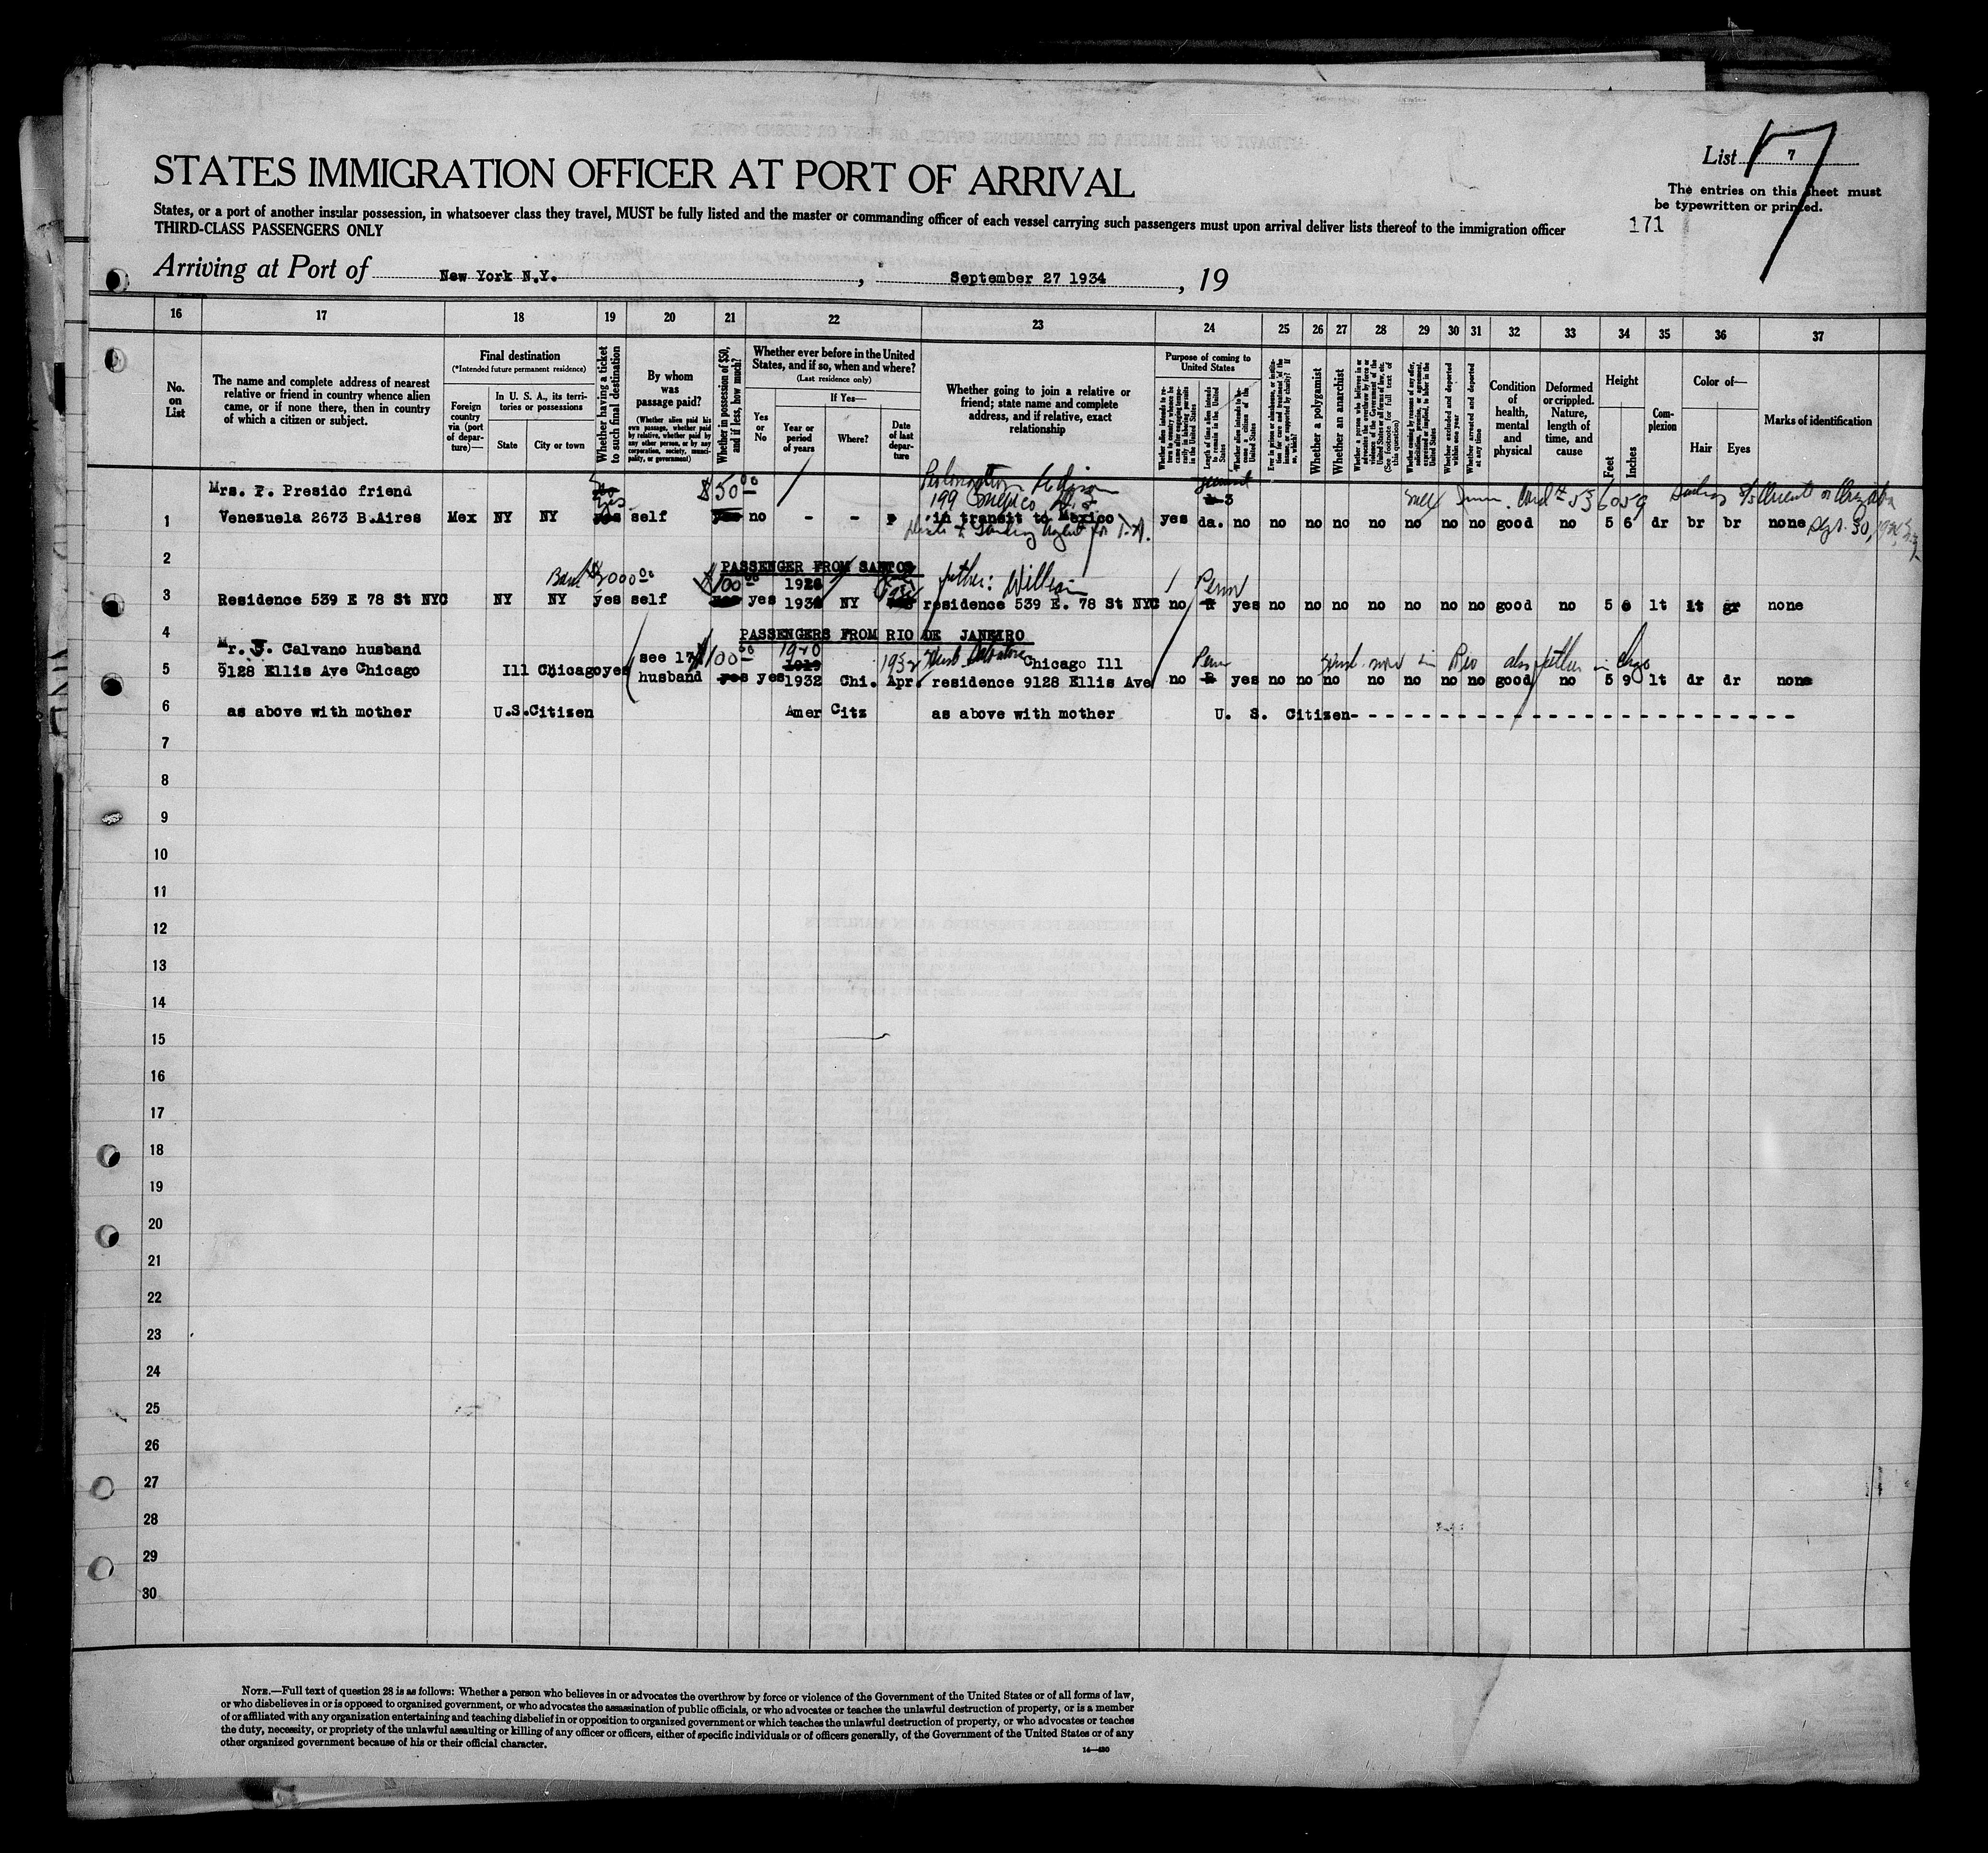 List 7
The entries on this sheet must
be typewritten or printed.
171
STATES IMMIGRATION OFFICER AT PORT OF ARRIVAL
States, or a port of another insular possession, in whatsoever class they travel, MUST be fully listed and the master or commanding officer of each vessel carrying such passengers must upon arrival deliver lists thereof to the immigration officer
THIRD-CLASS PASSENGERS ONLY
Arriving at Port of New York N.Y. , September 27 1934 , 19
16 17 18 19 20 21 22 23 24 25 26 27 28 29 30 31 32 33 34 35 36 37
No. on List
The name and complete address of nearest
relative or friend in country whence alien
came, or if none there, then in country
of which a citizen or subject.
Final destination
(*Intended future permanent residence)
Foreign country via (port of departure)—
In U. S. A., its territories or possessions
State
City or town
Whether having a ticket to such final destination
By whom was passage paid?
(Whether alien paid his own passage, whether paid by relative, whether paid by any other person, or by any corporation, society, municipality, or government)
Whether in possession of $50, and if less, how much?
Whether ever before in the United
States, and if so, when and where?
(Last residence only)
Yes or No
If Yes—
Year or period of years
Where?
Date of last departure
Whether going to join a relative or
friend; state name and complete
address, and if relative, exact
relationship
Purpose of coming to
United States
Whether alien intends to return to country whence he came after engaging temporarily in laboring pursuits in the United States
Length of time alien intends to remain in the United States
Whether alien intends to become a citizen of the United States
Ever in prison or almshouse, or institution for care and treatment of the insane, or supported by charity? If so, which?
Whether a polygamist
Whether an anarchist
Whether a person who believes in or advocates the overthrow by force or violence of the Government of the United States or all forms of law, etc. (See footnote for full text of this question)
Whether coming by reason of any offer, solicitation, promise, or agreement, expressed or implied, to labor in the United States
Whether excluded and deported within one year
Whether arrested and deported at any time
Condition of health, mental and physical
Deformed or crippled. Nature, length of time, and cause
Height
Feet
Inches
Complexion
Color of—
Hair
Eyes
Marks of identification
Mrs. P. Presido friend $50 00 199
1 Venezuela 2673 B.Aires Mex NY NY yes self yes no - - in transit to Mexico yes da. no no no no no no no no good no 5 6 dr br br none Sept. 30, 1934
2 PASSENGER FROM SANTOS
$100 00 father: William Perm
3 Residence 539 E 78 St NYC NY NY yes self yes yes NY residence 539 E. 78 St NYC no R yes no no no no no no no good no 5 lt lt gr none
4 PASSENGERS FROM RIO DE JANEIRO
Mr. J. Calvano husband see 17 $100 00 1920 1932 Husb Chicago Ill Perm
5 9128 Ellis Ave Chicago Ill Chicago yes husband yes yes 1932 Chi. Apr. residence 9128 Ellis Ave no R yes no no no no no no no good no 5 9 lt dr dr none
6 as above with mother U.S.Citizen Amer Citz as above with mother U. S. Citizen
7
8
9
10
11
12
13
14
15
16
17
18
19
20
21
22
23
24
25
26
27
28
29
30
NOTE.—Full text of question 28 is as follows: Whether a person who believes in or advocates the overthrow by force or violence of the Government of the United States or of all forms of law,
or who disbelieves in or is opposed to organized government, or who advocates the assassination of public officials, or who advocates or teaches the unlawful destruction of property, or is a member
of or affiliated with any organization entertaining and teaching disbelief in or opposition to organized government or which teaches the unlawful destruction of property, or who advocates or teaches
the duty, necessity, or propriety of the unlawful assaulting or killing of any officer or officers, either of specific individuals or of officers generally, of the Government of the United States or of any
other organized government because of his or their official character.
14—430